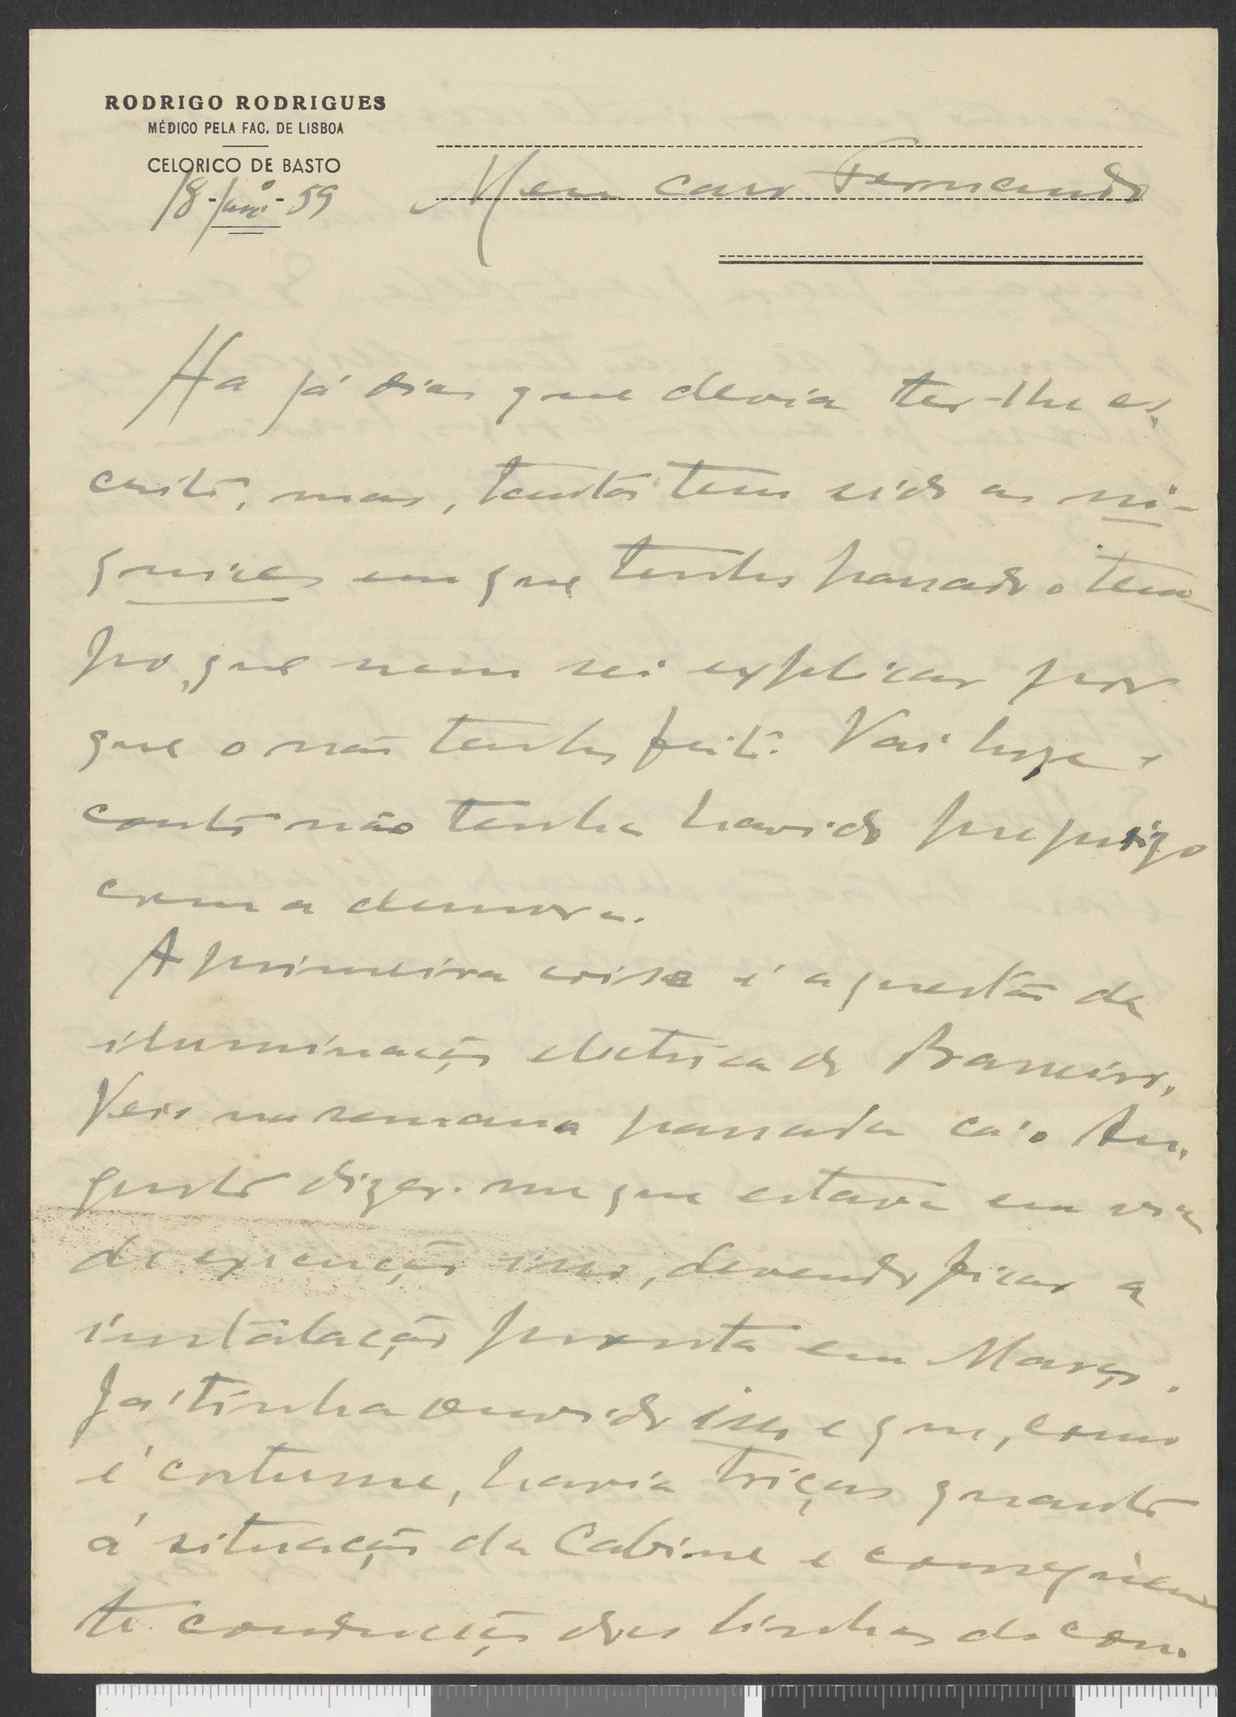 RODRIGO RODRIGUES
MÉDICO PELA FAC. DE LISBOA
CELORICO DE BASTO
18--59
Meu caro Fernando
Ha já dias que devia ter-lhe es-
crito, mas, tantas tem sido as ni-
quices em que tenho passado o tem-
po, que nem sei explicar por
que o não tenho feito. Vai hoje e
conto não tenha havido prejuizo
com a demora.
A primeira coisa é a questão da
iluminação eletrica do
Veio na semana passada cá o Au-
gusto dizer-me que estava em via
de execução isso, devendo ficar a
instalação pronta em Março.
Já tinha ouvido isso e que, como
é costume, havia triças quanto
á situação da Cabine e consequen-
te condução das linhas de con-